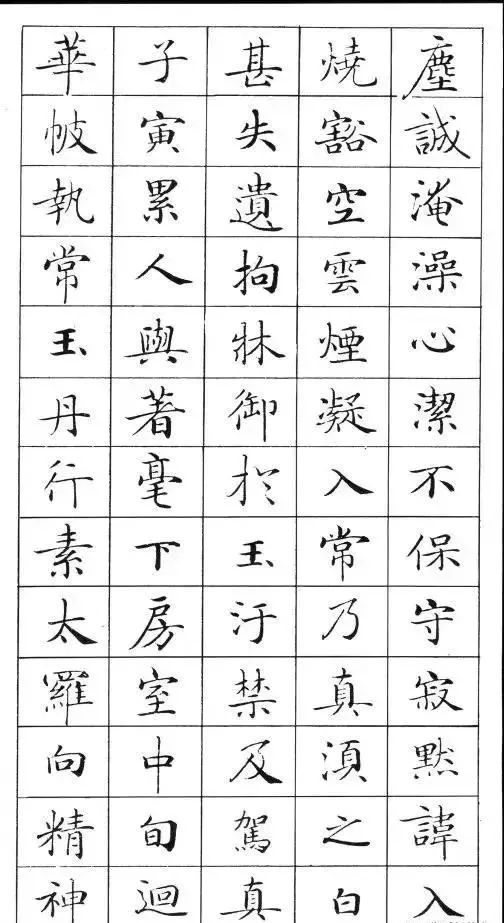 塵誠淹澡心潔不保守寂默諱入
燒豁空雲煙凝入常乃真須之白
甚失遺拘牀御於玉汙禁及駕真
子寅累人輿著毫下房室中旬迴
華帔執常玉丹行素太羅向精神